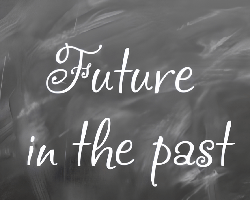 Future
in the past